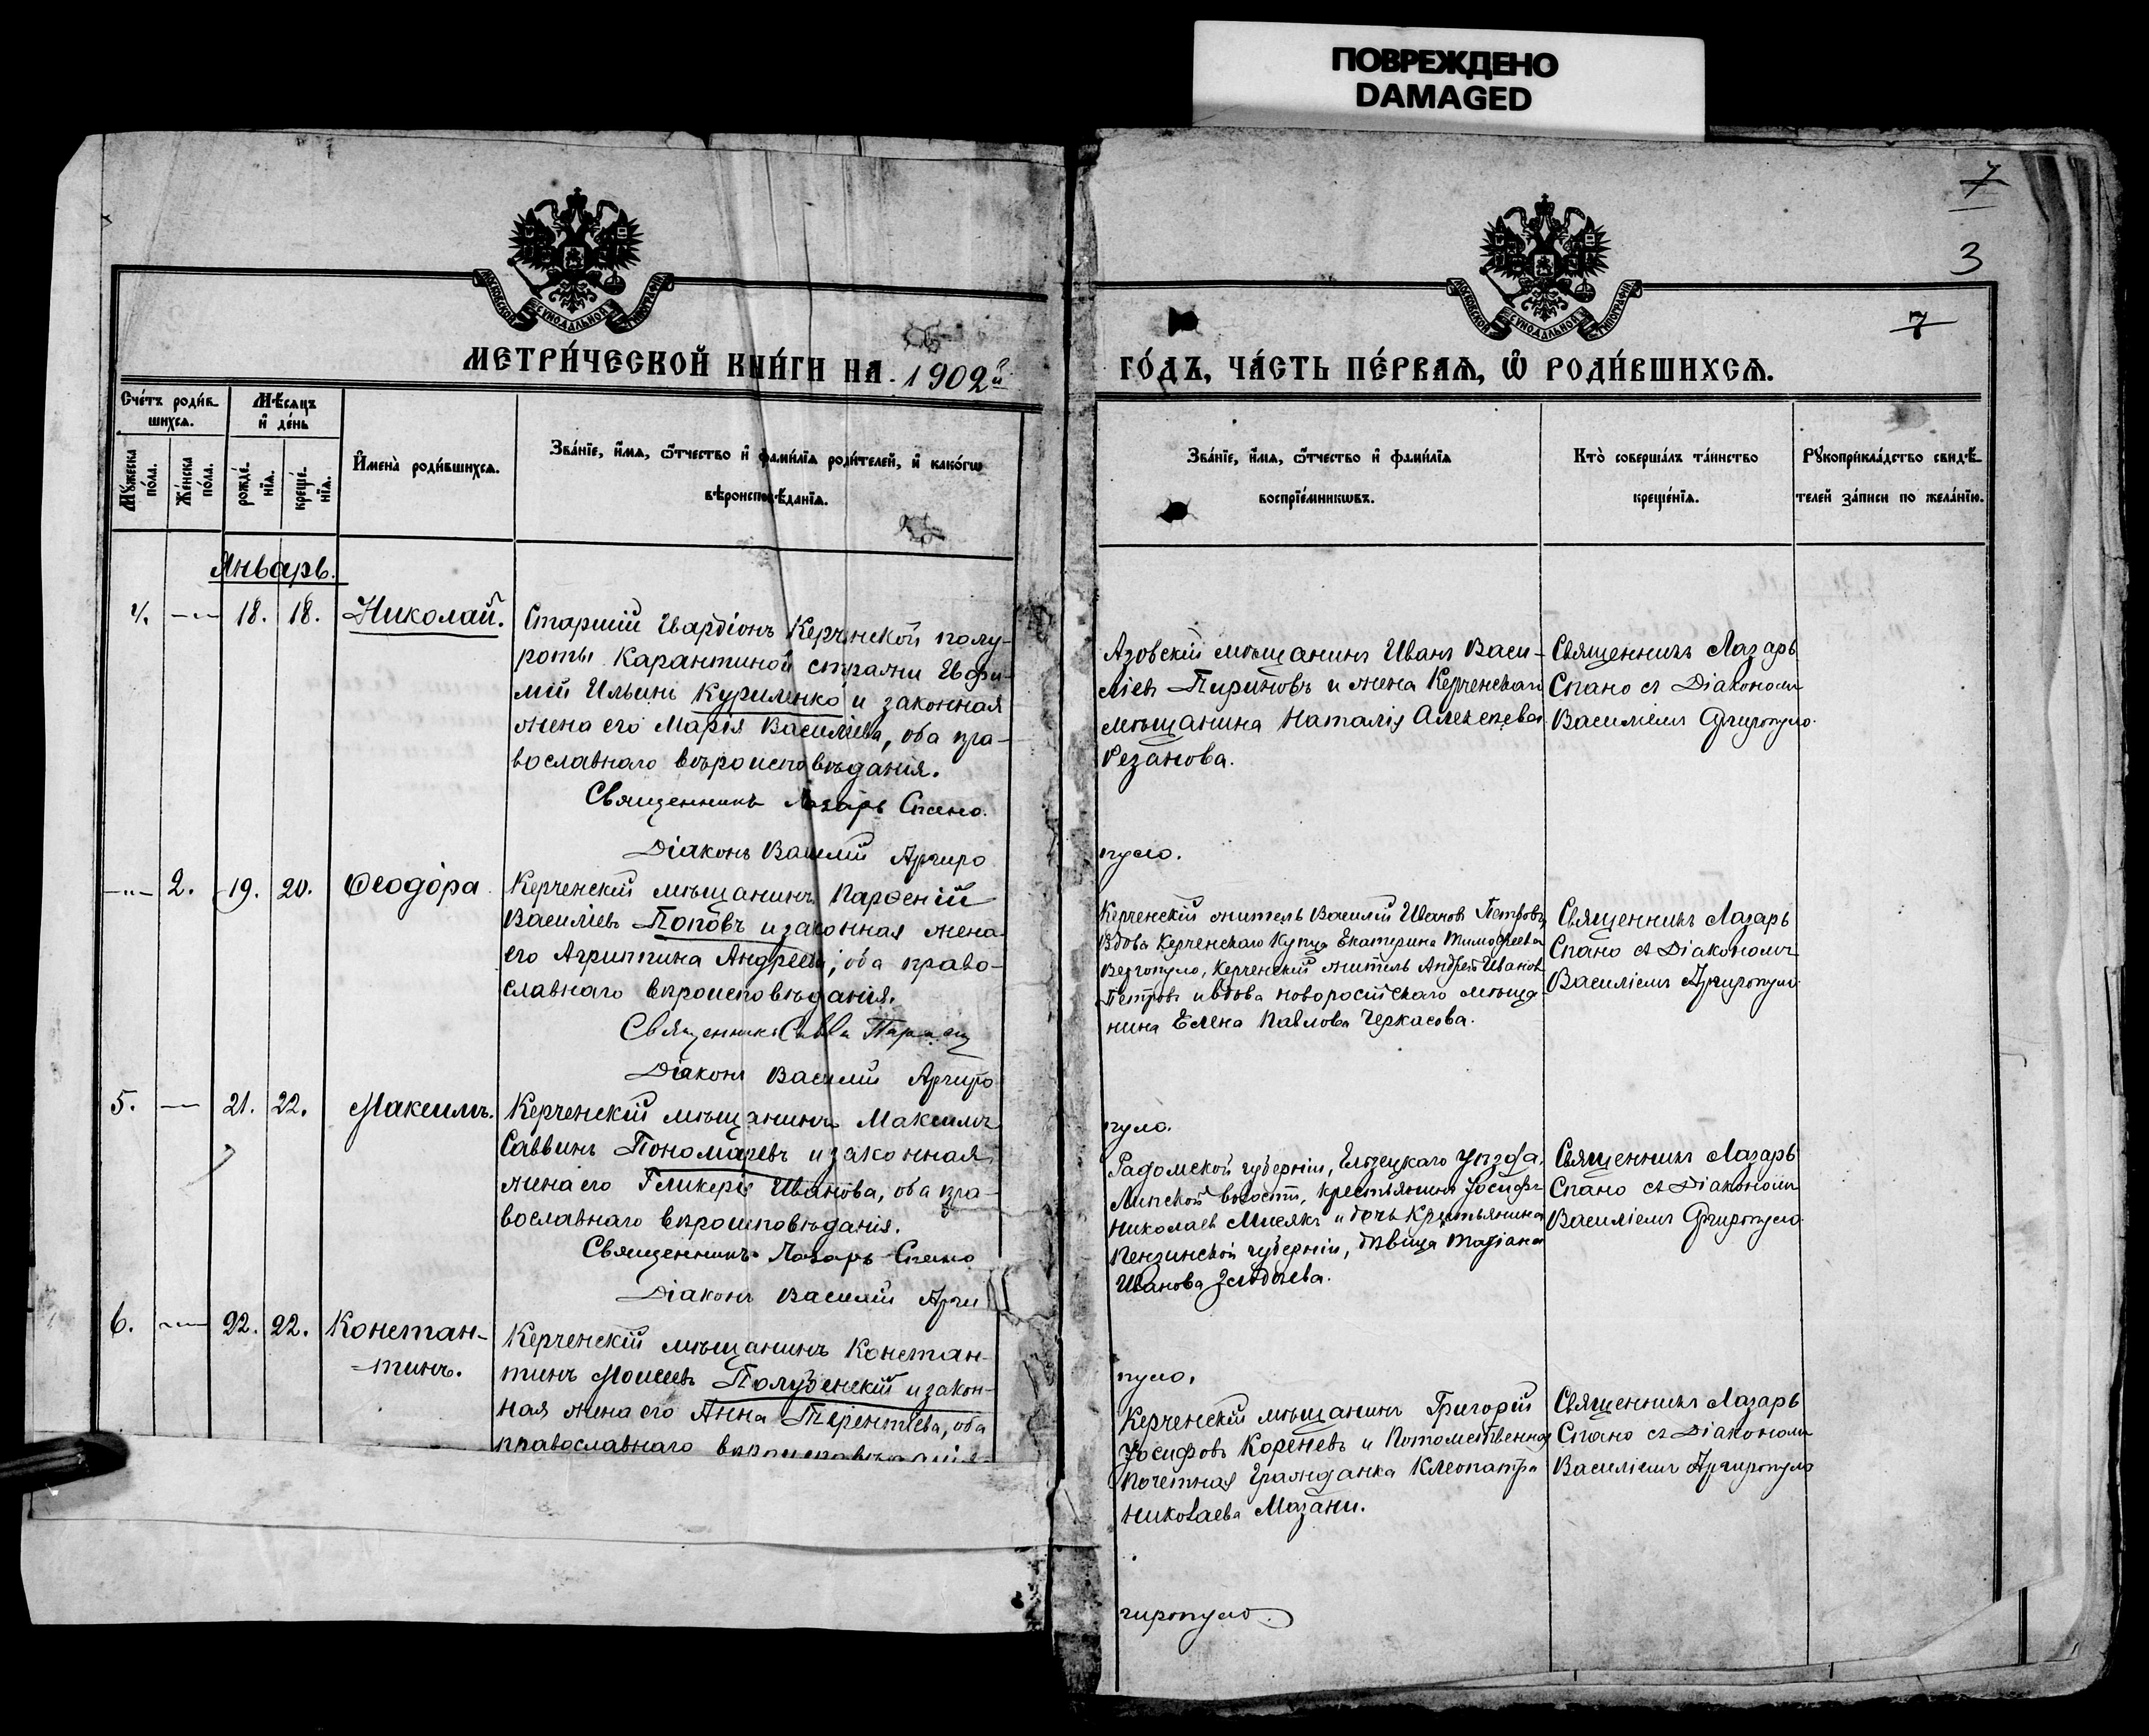 ПОВРЕЖДЕНО
DAMAGED
7
3
7
МОСКОВСКОЙ СѴНОДАЛЬНОЙ ТИПОГРАФІИ
МОСКОВСКОЙ СѴНОДАЛЬНОЙ ТИПОГРАФІИ
МЕТРИ́ЧЕСКОЙ КНИ́ГИ НА 1902й
ГО́ДЪ, ЧА́СТЬ ПЕ́РВАѦ, Ѡ҆ РОДИ́ВШИХСѦ.
Сче́тъ роди́в-
шихсѧ.
Мѣ́сяцъ
и҆ де́нь
Мꙋжеска по́ла.
Же́нска по́ла.
рожде́-нїѧ.
креще́-нїѧ.
И҆мена̀ роди́вшихсѧ.
Зва́нїе, и҆́мѧ, ѻ҆́тчество и҆ фами́лїѧ роди́телей, и҆ како́гѡ
вѣроисповѣ́данїѧ.
Зва́нїе, и҆́мѧ, ѻ҆́тчество и҆ фами́лїѧ
воспрїе́мникѡвъ.
Кто̀ соверша́лъ та́инство
креще́нїѧ.
Рꙋкоприкла́дство свидѣ́-
телей за́писи по жела́нїю.
Январь.
4. 18. 18. Николай.
Старшій Гвардіонъ Керченской полу-
роты Карантиной стражи Ефи-
мій Ильинъ Куриленко и законная
жена его Марія Васильева, оба пра-
вославнаго вѣроисповѣданія.
Священникъ Лазарь Спано.
Діаконъ Василій Аргиро
Азовскій мѣщанинъ Иванъ Васи-
ліевъ Пириновъ и жена Керченскаго
мѣщанина Наталія Алексѣева
Резанова.
пуло.
Священникъ Лазарь
Спано съ Діакономъ
Василіемъ Аргиропуло.
2. 19. 20. Ѳеодора
Керченскій мѣщанинъ Парѳеній
Василіевъ Поповъ и законная жена
его Агриппина Андреева, оба право-
славнаго вѣроисповѣданія.
Священникъ Савва
Діаконъ Василій Аргиро
Керченскій житель Василій Ивановъ Петровъ,
Вдова Керченскаго Купца Екатерина Тимофеева
Вергопуло, Керченскій житель Андрей Ивановъ
Петровъ и вдова новоросійскаго мѣща-
нина Елена Павлова Черкасова.
пуло.
Священникъ Лазарь
Спано съ Діакономъ
Василіемъ Аргиропуло.
5. 21. 22. Максимъ.
Керченскій мѣщанинъ Максимъ
Саввинъ Пономаревъ и законная
жена его Гликерія Иванова, оба пра-
вославнаго вѣроисповѣданія.
Священникъ Лазарь Спано
Діаконъ Василій Арги
Радомской губерніи, уѣзда,
Липской волости, крестьянинъ Іосифъ
Николаевъ Мисякъ и дочь Крестьянина
Пензинской губерніи, дѣвица Маріана
Иванова
пуло.
Священникъ Лазарь
Спано съ Діакономъ
Василіемъ Аргиропуло.
6. 22. 22. Констан-
тинъ.
Керченскій мѣщанинъ Констан-
тинъ Моисеевъ Полуденскій и закон-
ная жена его Анна Терентіева, оба
православнаго вѣроисповѣданія
Керченскій мѣщанинъ Григорій
Іосифовъ Кореневъ и Потомственная
Почетная Гражданка Клеопатра
Николаева Мазани.
гиропуло.
Священникъ Лазарь
Спано съ Діакономъ
Василіемъ Аргиропуло